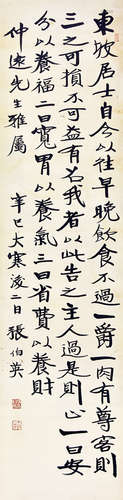 東坡居士自今以往早晚飲食不過一爵一肉有尊客則
三之可損不可益有召我者以此告之主人過是則止一曰安
分以養福二曰寬胃以養氣三曰省費以養財
仲遠先生雅屬
辛巳大寒後二日張伯英